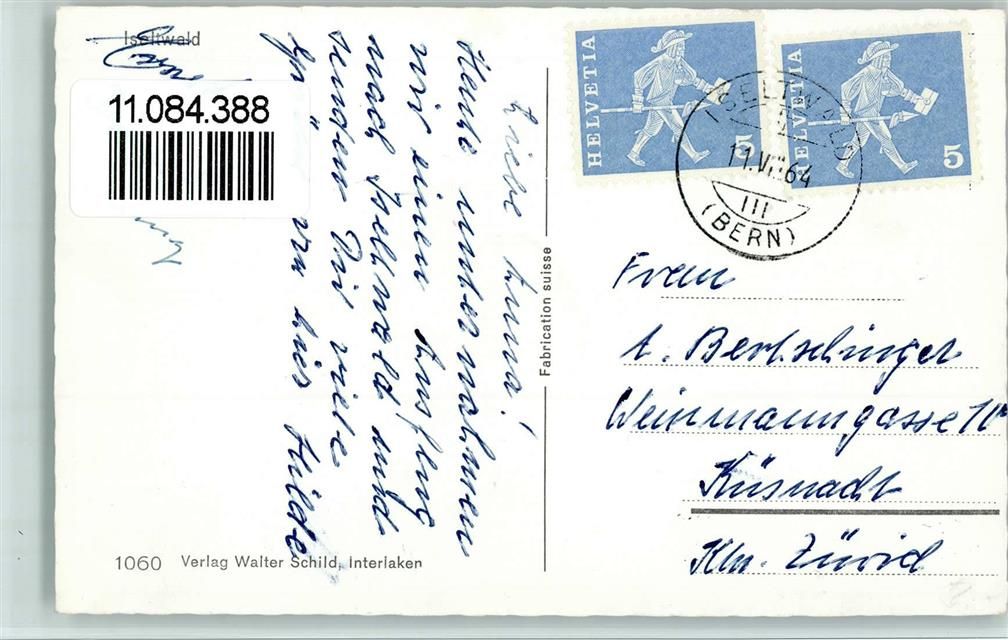 Iseltwald
11.084.388
Liebe Anna!
Heute unternahmen
wir einen Ausflug
nach Iseltwald und
senden Dir viele
von hier Hilde
Fabrication suisse
HELVETIA
5
HELVETIA
5
ISELTWALD
11.VII.64
III
(BERN)
Frau
A. Bertschinger
Weinmanngasse
Küsnacht
Ktn. Zürich
1060 Verlag Walter Schild, Interlaken